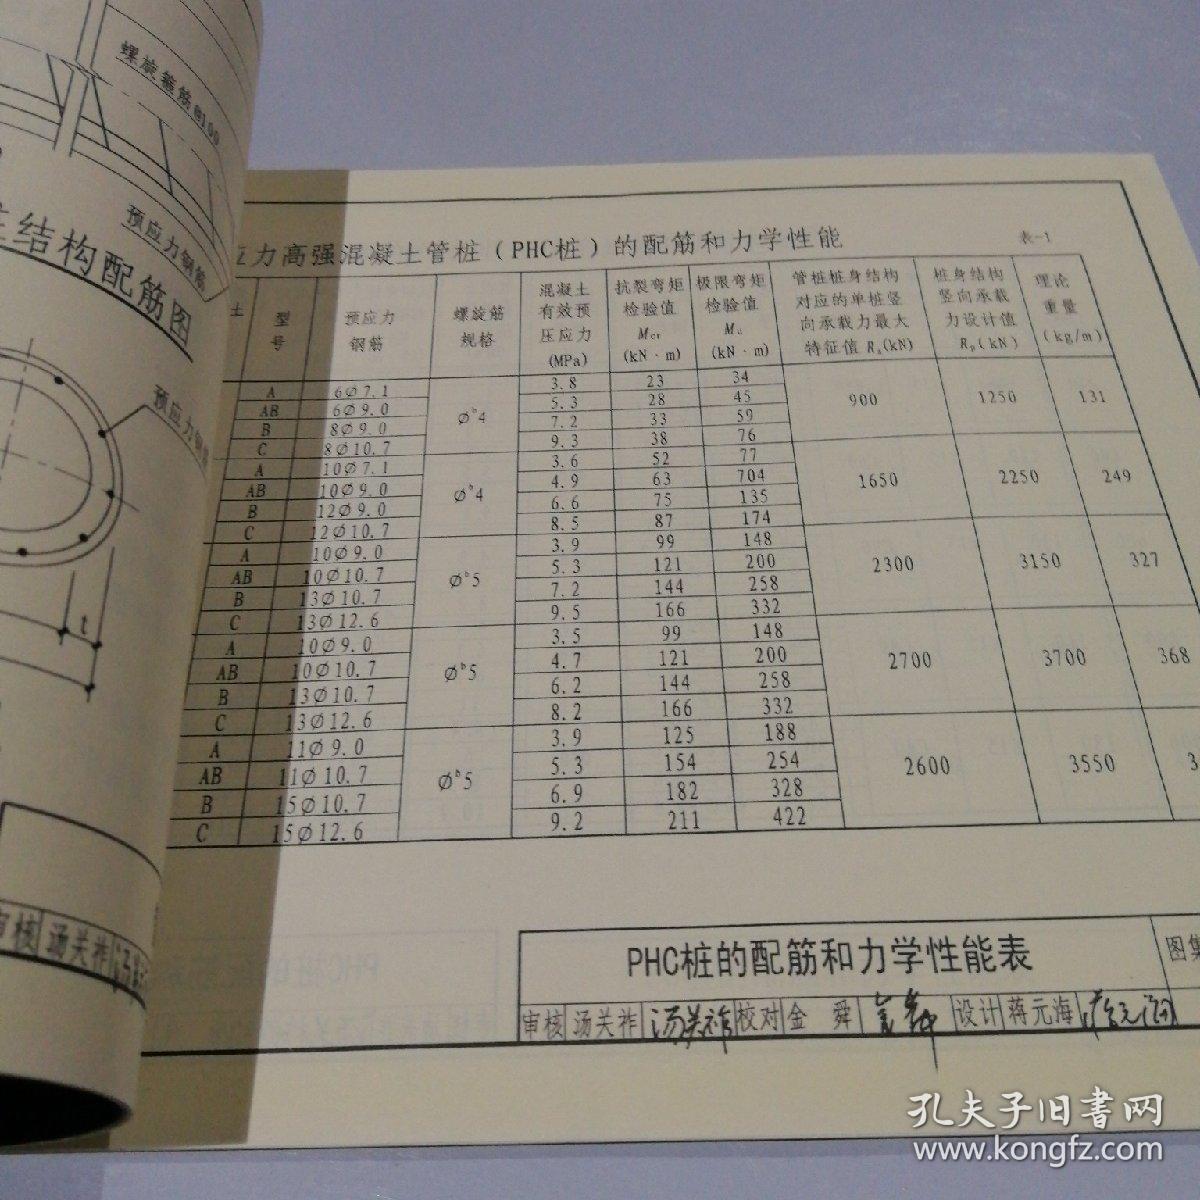 螺旋箍筋@100
预应力钢筋
结构配筋图
预应力钢
t
审核 汤关祚
应力高强混凝土管桩(PHC桩)的配筋和力学性能
表-1
土 型号 预应力钢筋 螺旋筋规格 混凝土有效预压应力(MPa) 抗裂弯矩检验值Mcr(kN·m) 极限弯矩检验值Mu(kN·m) 管桩桩身结构对应的单桩竖向承载力最大特征值Ra(kN) 桩身结构竖向承载力设计值Rp(kN) 理论重量(kg/m)
A 6∅7.1 ∅b4 3.8 23 34 900 1250 131
AB 6∅9.0 5.3 28 45
B 8∅9.0 7.2 33 59
C 8∅10.7 9.3 38 76
A 10∅7.1 ∅b4 3.6 52 77 1650 2250 249
AB 10∅9.0 4.9 63 704
B 12∅9.0 6.6 75 135
C 12∅10.7 8.5 87 174
A 10∅9.0 ∅b5 3.9 99 148 2300 3150 327
AB 10∅10.7 5.3 121 200
B 13∅10.7 7.2 144 258
C 13∅12.6 9.5 166 332
A 10∅9.0 ∅b5 3.5 99 148 2700 3700 368
AB 10∅10.7 4.7 121 200
B 13∅10.7 6.2 144 258
C 13∅12.6 8.2 166 332
A 11∅9.0 ∅b5 3.9 125 188 2600 3550 3
AB 11∅10.7 5.3 154 254
B 15∅10.7 6.9 182 328
C 15∅12.6 9.2 211 422
PHC桩的配筋和力学性能表 图集
审核 汤关祚 汤关祚 校对 金舜 设计 蒋元海
孔夫子旧书网
www.kongfz.com